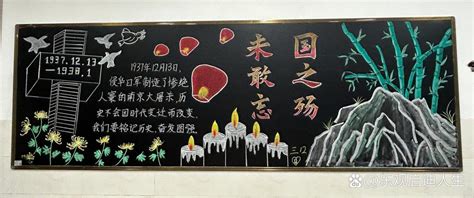 1937.12.13
—1938.1
1937年12月13日,
侵华日军制造了惨绝
人寰的南京大屠杀,历
史不会因时代变迁而改变,
我们要铭记历史,奋发图强。
国之殇
未敢忘
三.12